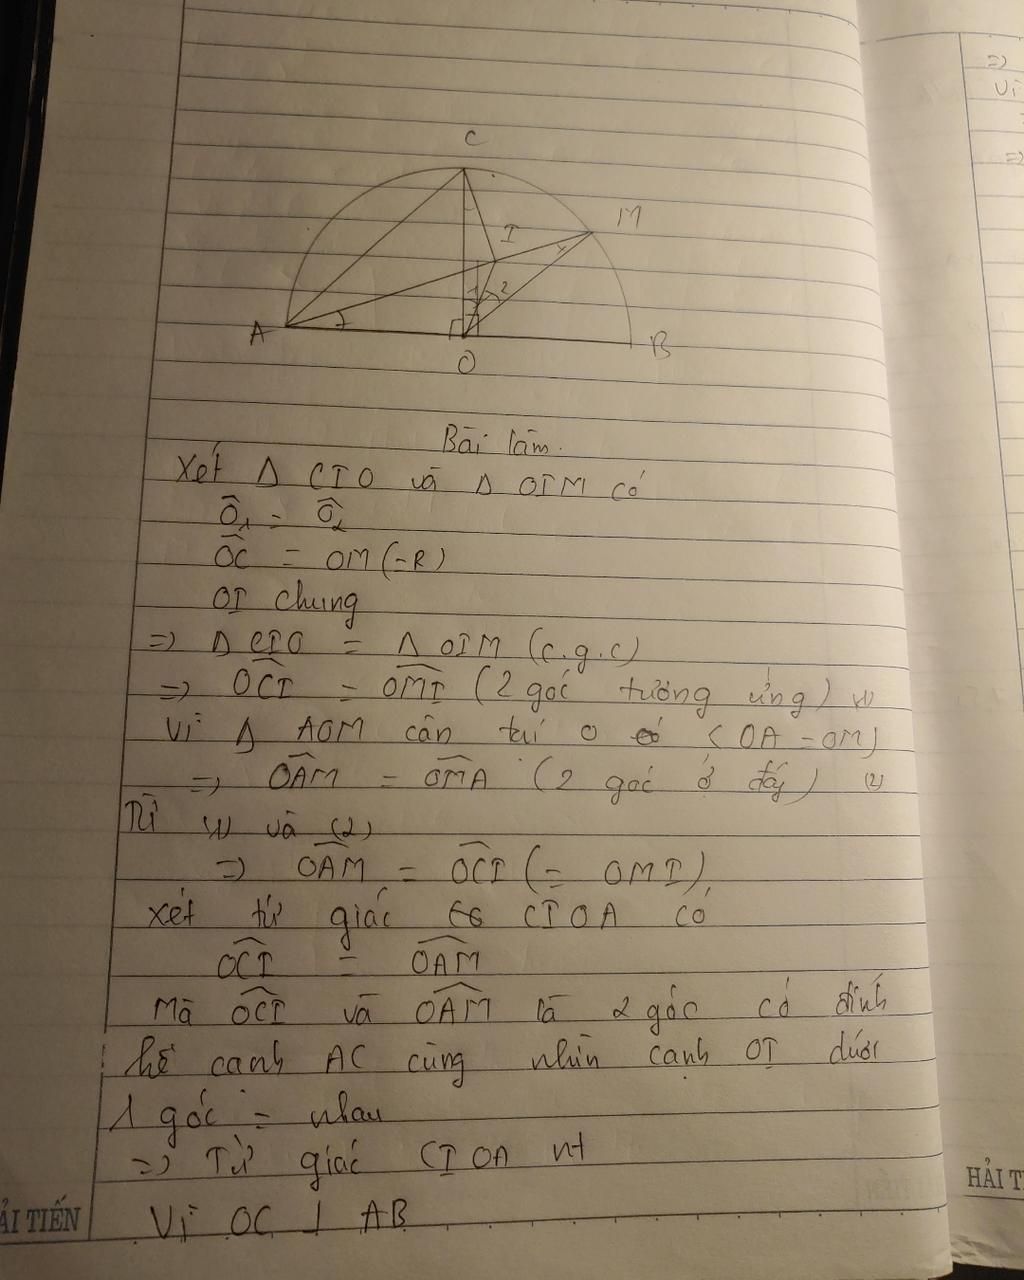 =)
Vì
=)
C
M
I
1
2
A
O
B
Bài làm.
Xét Δ CIO và Δ OIM có
Ô1 = Ô2
OC = OM (=R)
OI chung
=) Δ CIO = Δ OIM (c.g.c)
=) OCI = OMI (2 góc tương ứng) (1)
Vì Δ AOM cân tại O (OA = OM)
=) OAM = OMA (2 góc ở đáy) (2)
Từ (1) và (2)
=) OAM = OCI (= OMI)
xét tứ giác CIOA có
OCI = OAM
Mà OCI và OAM là 2 góc có đỉnh
kề cạnh AC cùng nhìn cạnh OI dưới
1 góc = nhau
=) Tứ giác CIOA nt
Vì OC ⊥ AB
ẢI TIẾN
HẢI T